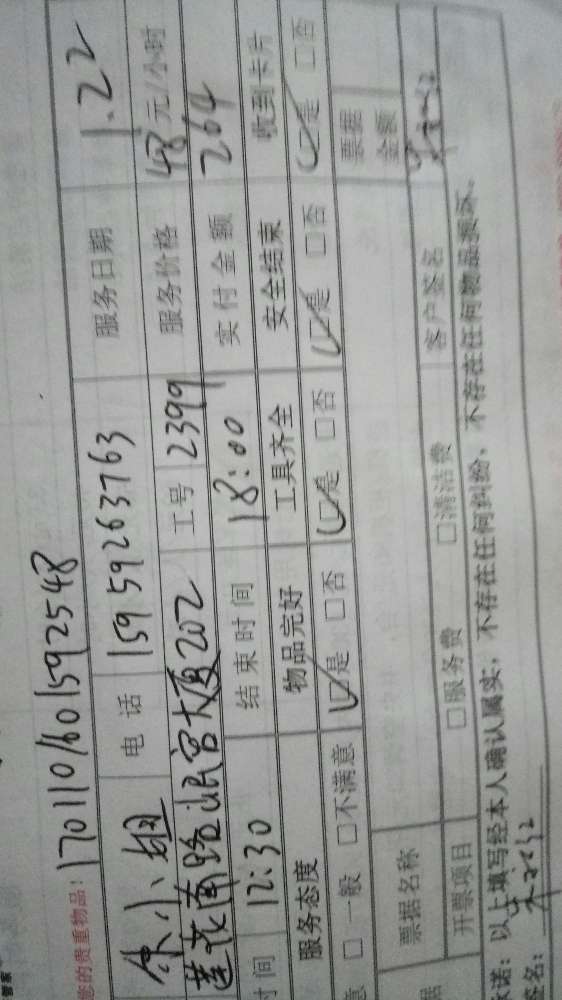 管家
您的贵重物品: 170110/601592548
余小姐 电话 15959263763 服务日期 1.22
莲花南路 大厦202 工号 2399 服务价格 48元/小时
时间 12:30 结束时间 18:00 实付金额 264
服务态度 物品完好 工具齐全 安全结束 收到卡片
意 □一般 □不满意 ☑是 □否 ☑是 □否 ☑是 □否 ☑是 □否
据 票据名称 票据金额
开票项目 □服务费 □清洁费 客户签名
诺: 以上填写经本人确认属实; 不存在任何纠纷、不存在任何物品损坏.
签名: